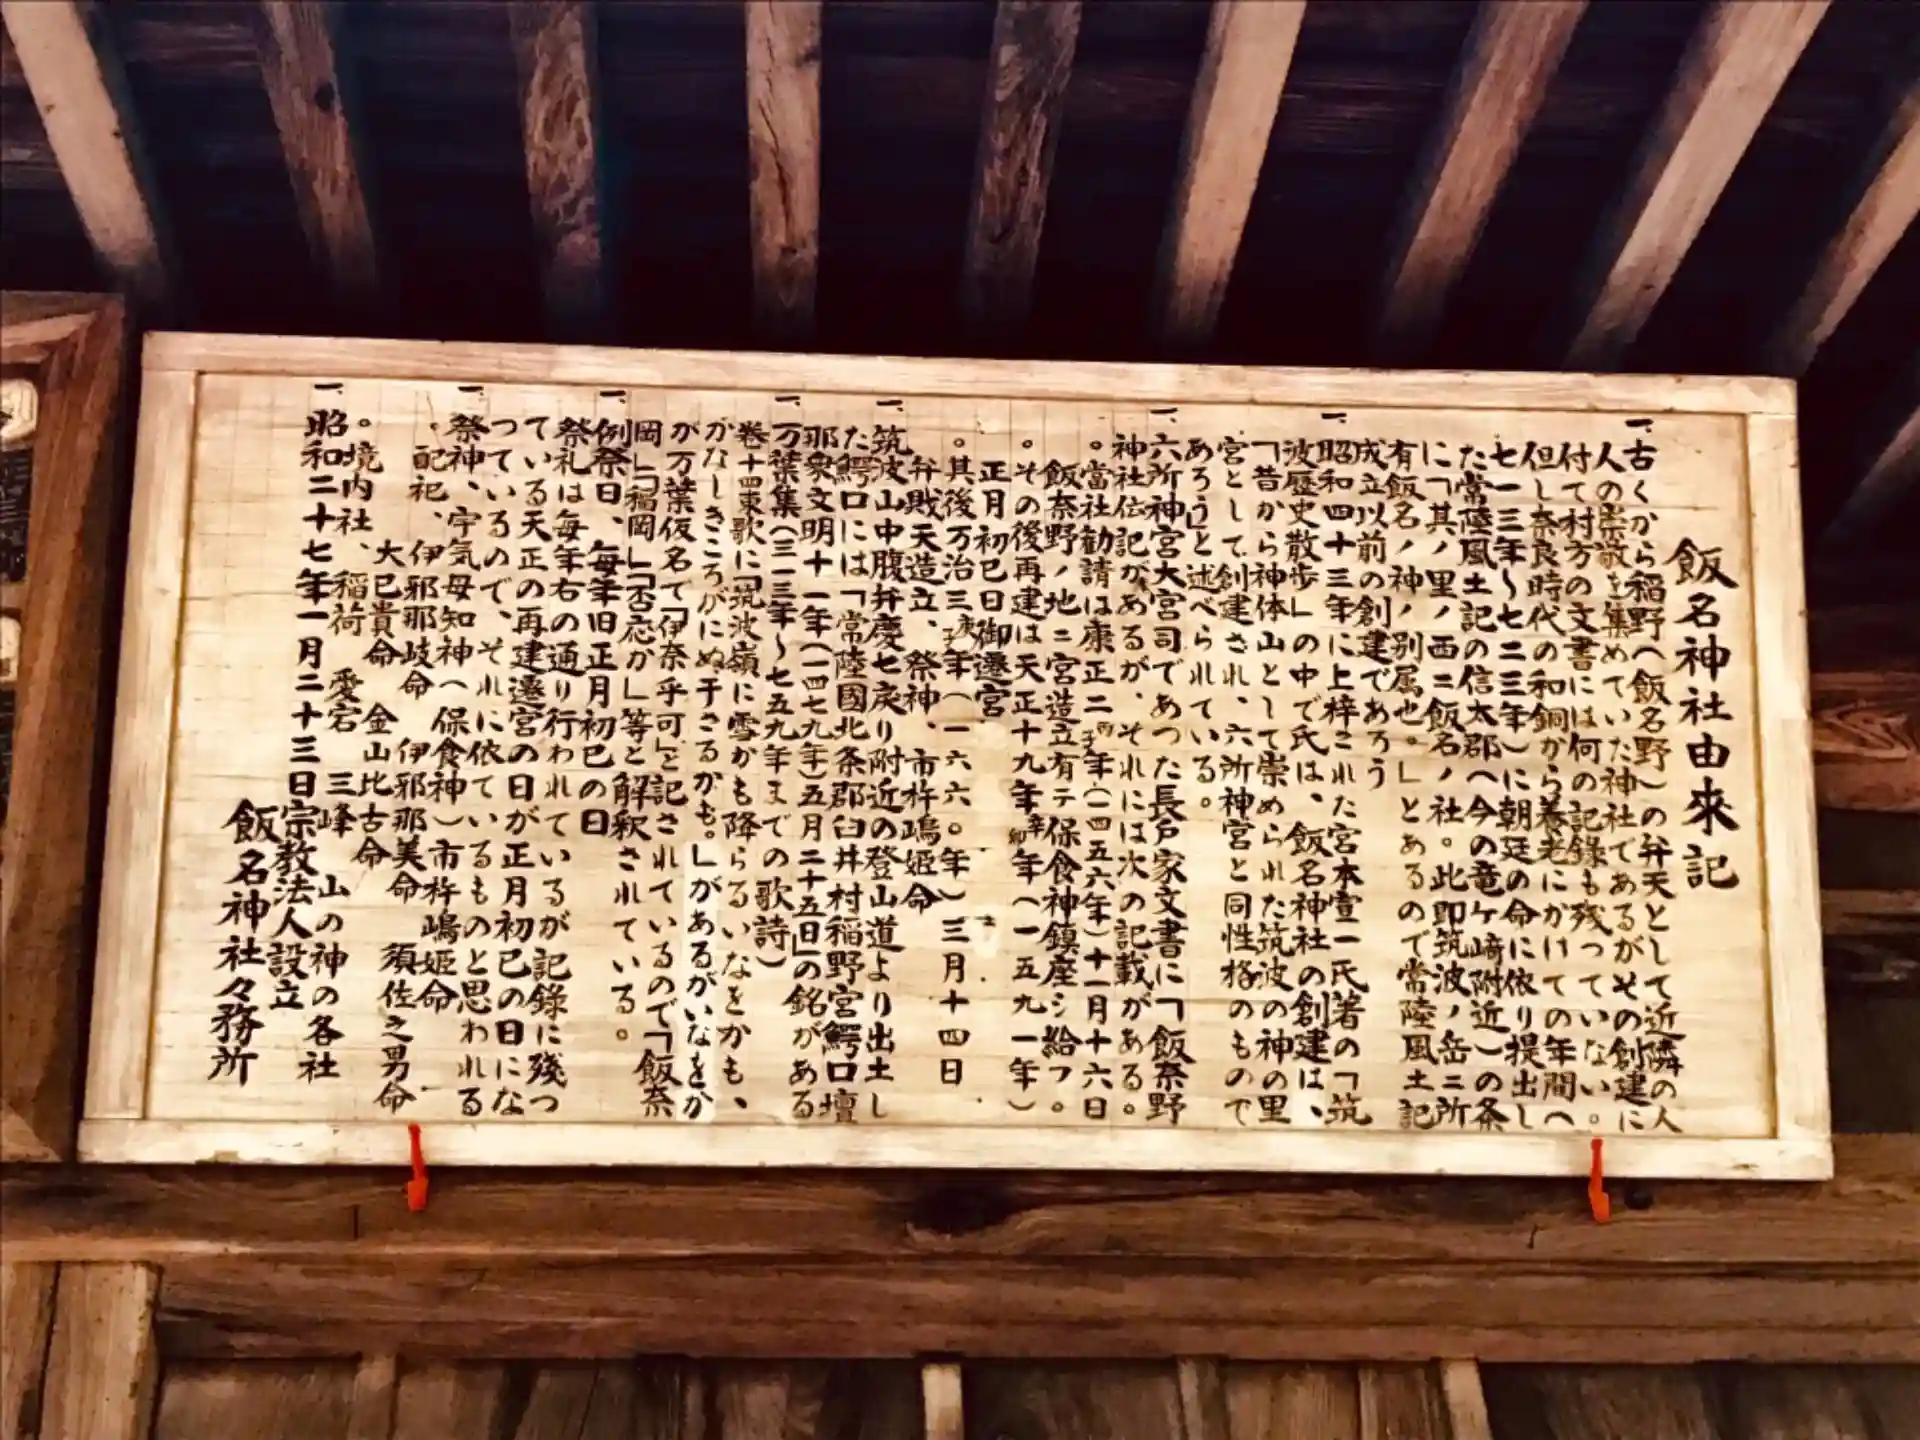 飯名神社由來記
一、古くから稲野へ飯名野)の弁天として近隣の人
人の崇敬を集めていた神社であるがその創建に
付て村方の文書には何の記録も残っていない。
但し奈良時代の和銅から養老にかけての年間へ
七一三年~七二三年)に朝廷の命に依り提出し
た常陸風土記の信太郡へ今の竜ヶ崎附近)の条
に「其ノ里ノ西ニ飯名ノ社。此即筑波ノ岳ニ所
有飯名ノ神ノ別属也。」とあるので常陸風土記
成立以前の創建であろう
一、昭和四十三年に上梓された宮本宣一氏著の「筑
波歴史散歩」の中で氏は、飯名神社の創建は、
「昔から神体山として崇められた筑波の神の里
宮として創建され、六所神宮と同性格のもので
あろう」と述べられている。
一、六所神宮大宮司であつた長戸家文書に「飯奈野
神社伝記があるが、それには次の記載がある。
。當社勧請は康正二丙子年(一四五六年)十一月十六日
飯奈野ノ地ニ宮造立有テ保食神鎮座シ給フ。
。その後再建は天正十九年辛卯年(一五九一年)
正月初巳日御遷宮
。其後万治三庚子年(一六六。年)三月十四日
弁戝天造立、祭神、市杵嶋姫命
一、筑波山中腹弁慶七戻り附近の登山道より出土し
た鰐口には「常陸國北条郡臼井村稲野宮鰐口壇
那衆文明十一年(一四七九年)五月二十五日」の銘がある
一、万葉集(三一三年~七五九年までの歌詩)
巻十四東歌に「筑波嶺に雪かも降らるいなをかも、
かなしきころがにぬ干さるかも。」があるがいなをか
が万葉仮名で「伊奈乎可」と記されているので「飯奈
岡」「稲岡」「否応か」等と解釈されている。
一、例祭日、毎年旧正月初巳の日
祭礼は毎年右の通り行われているが記録に残つ
ている天正の再建遷宮の日が正月初巳の日にな
つているので、それに依ているものと思われる
一、祭神、宇気母知神へ保食神)市杵嶋姫命
。配祀、伊邪那岐命 伊邪那美命 須佐之男命
大巳貴命 金山比古命
。境内社、稲荷 愛宕 三峰 山の神の各社
一、昭和二十七年一月二十三日宗教法人設立
飯名神社々務所